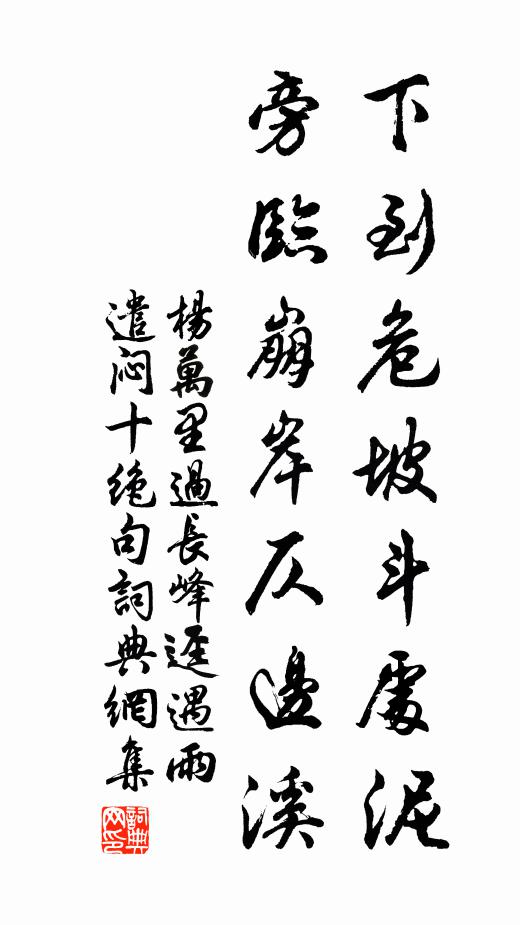 下到危坡斗處泥
旁臨崩岸仄邊溪
楊萬里過長峰逕遇雨
遣悶十絕句詞典網集
詞典
网印